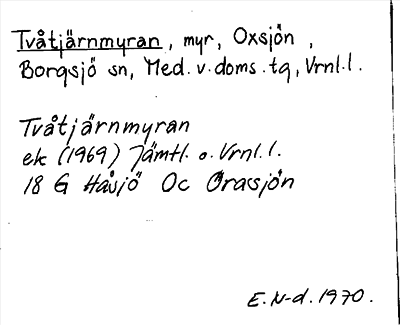 Tvåtjärnmyran, myr, Oxsjön,
Borgsjö sn, Med. v. doms. tg, Vrnl. l.
Tvåtjärnmyran
ek (1969) Jämtl. o. Vrnl. l.
18 G Håsjö Oc Oracsjön
E. N-d. 1970.